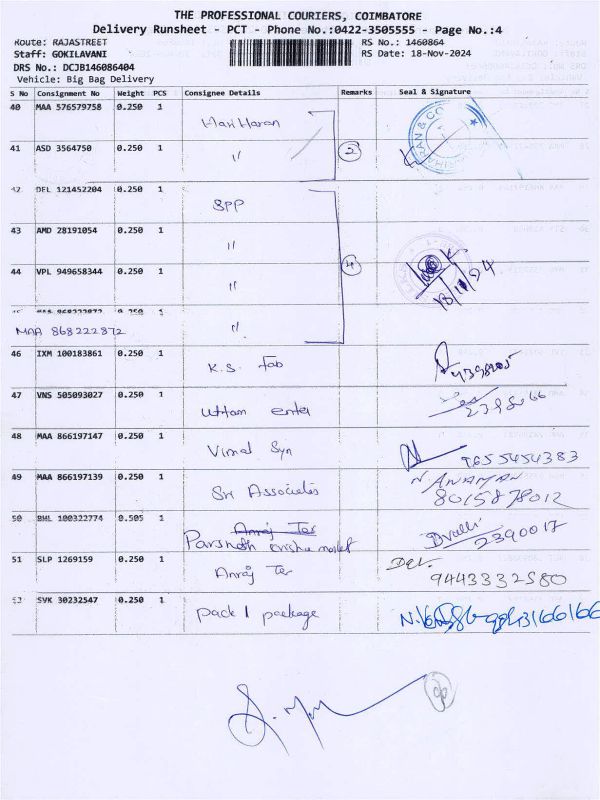 THE PROFESSIONAL COURIERS, COIMBATORE
Delivery Runsheet - PCT - Phone No.:0422-3505555 - Page No.:4
Route: RAJASTREET RS No.: 1460864
Staff: GOKILAVANI RS Date: 18-Nov-2024
DRS No.: DCJB146086404
Vehicle: Big Bag Delivery
S No Consignment No Weight PCS Consignee Details Remarks Seal & Signature
40 MAA 576579758 0.250 1 Hari Haran
41 ASD 3564750 0.250 1 〃
42 DEL 121452204 0.250 1 SPP
43 AMD 28191054 0.250 1 〃
44 VPL 949658344 0.250 1 〃 4 18/11/24
MAA 868222872 0.250 1 〃
46 IXM 100183861 0.250 1 K.S. fab
47 VNS 505093027 0.250 1 Uttam enter
48 MAA 866197147 0.250 1 Vimal Syn 9655454383
49 MAA 866197139 0.250 1 Sri Associates 8015878012
50 BHL 100322774 0.505 1 Anraj Tex 2390017
51 SLP 1269159 0.250 1 Anraj Tex 9443332580
SVK 30232547 0.250 1 pack 1 package